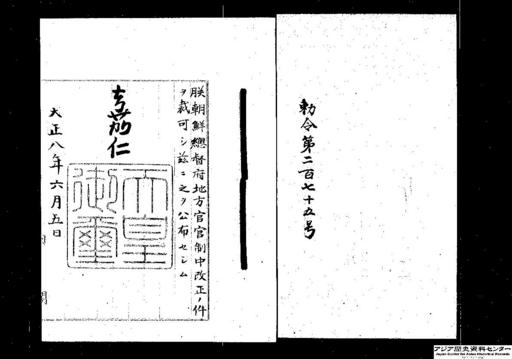 勅令第二百七十五号
朕朝鮮總督府地方官官制中改正ノ件
ヲ裁可シ茲ニ之ヲ公布セシム
嘉仁
天皇
御璽
大正八年六月五日
アジア歴史資料センター
Japan Center for Asian Historical Records